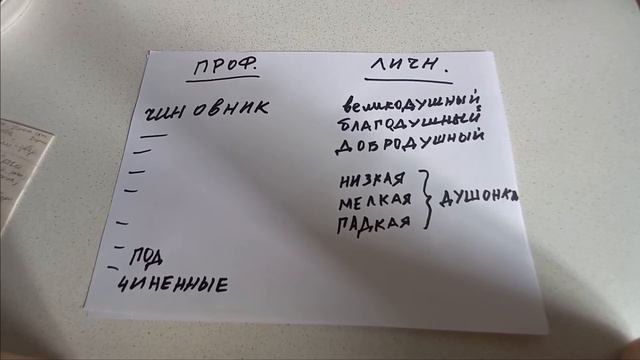 ПРОФ.
ЧИНОВНИК
ПОД
ЧИНЕННЫЕ
ЛИЧН.
ВЕЛИКОДУШНЫЙ
БЛАГОДУШНЫЙ
ДОБРОДУШНЫЙ
НИЗКАЯ
МЕЛКАЯ
ПАДКАЯ
ДУШОНКА